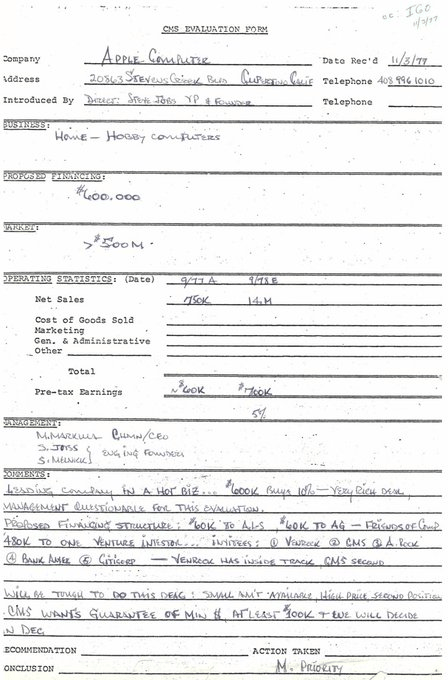 cc: IGO
11/3/77
CMS EVALUATION FORM
Company APPLE COMPUTER Date Rec'd 11/3/77
Address 20863 STEVENS CREEK BLVD CUPERTINO CALIF Telephone 408 996 1010
Introduced By DIRECT: STEVE JOBS VP & FOUNDER Telephone
BUSINESS:
HOME — HOBBY COMPUTERS
PROPOSED FINANCING:
$600,000
MARKET:
>$500M
OPERATING STATISTICS: (Date) 9/77 A 9/78 E
Net Sales 750K 14M
Cost of Goods Sold
Marketing
Gen. & Administrative
Other
Total
Pre-tax Earnings ~$60K $700K
5%
MANAGEMENT:
M. MARKULA CHMN/CEO
S. JOBS
ENGING FOUNDERS
COMMENTS:
LEADING COMPANY IN A HOT BIZ... $600K BUYS 10% — VERY RICH DEAL,
MANAGEMENT QUESTIONABLE FOR THIS EVALUATION.
PROPOSED FINANCING STRUCTURE: $60K TO $60K TO AG — FRIENDS OF COMP
480K TO ONE VENTURE INVESTOR... INVITEES: ① VENROCK ② CMS ③ A. ROCK
④ BANK AMER ⑤ CITICORP — VENROCK HAS INSIDE TRACK, CMS SECOND
WILL BE TOUGH TO DO THIS DEAL: SMALL AM'T AVAILABLE, HIGH PRICE, SECOND POSITION
CMS WANTS GUARANTEE OF MIN $, AT LEAST $300K + WILL DECIDE
IN DEC
RECOMMENDATION ACTION TAKEN
CONCLUSION M. PRIORITY